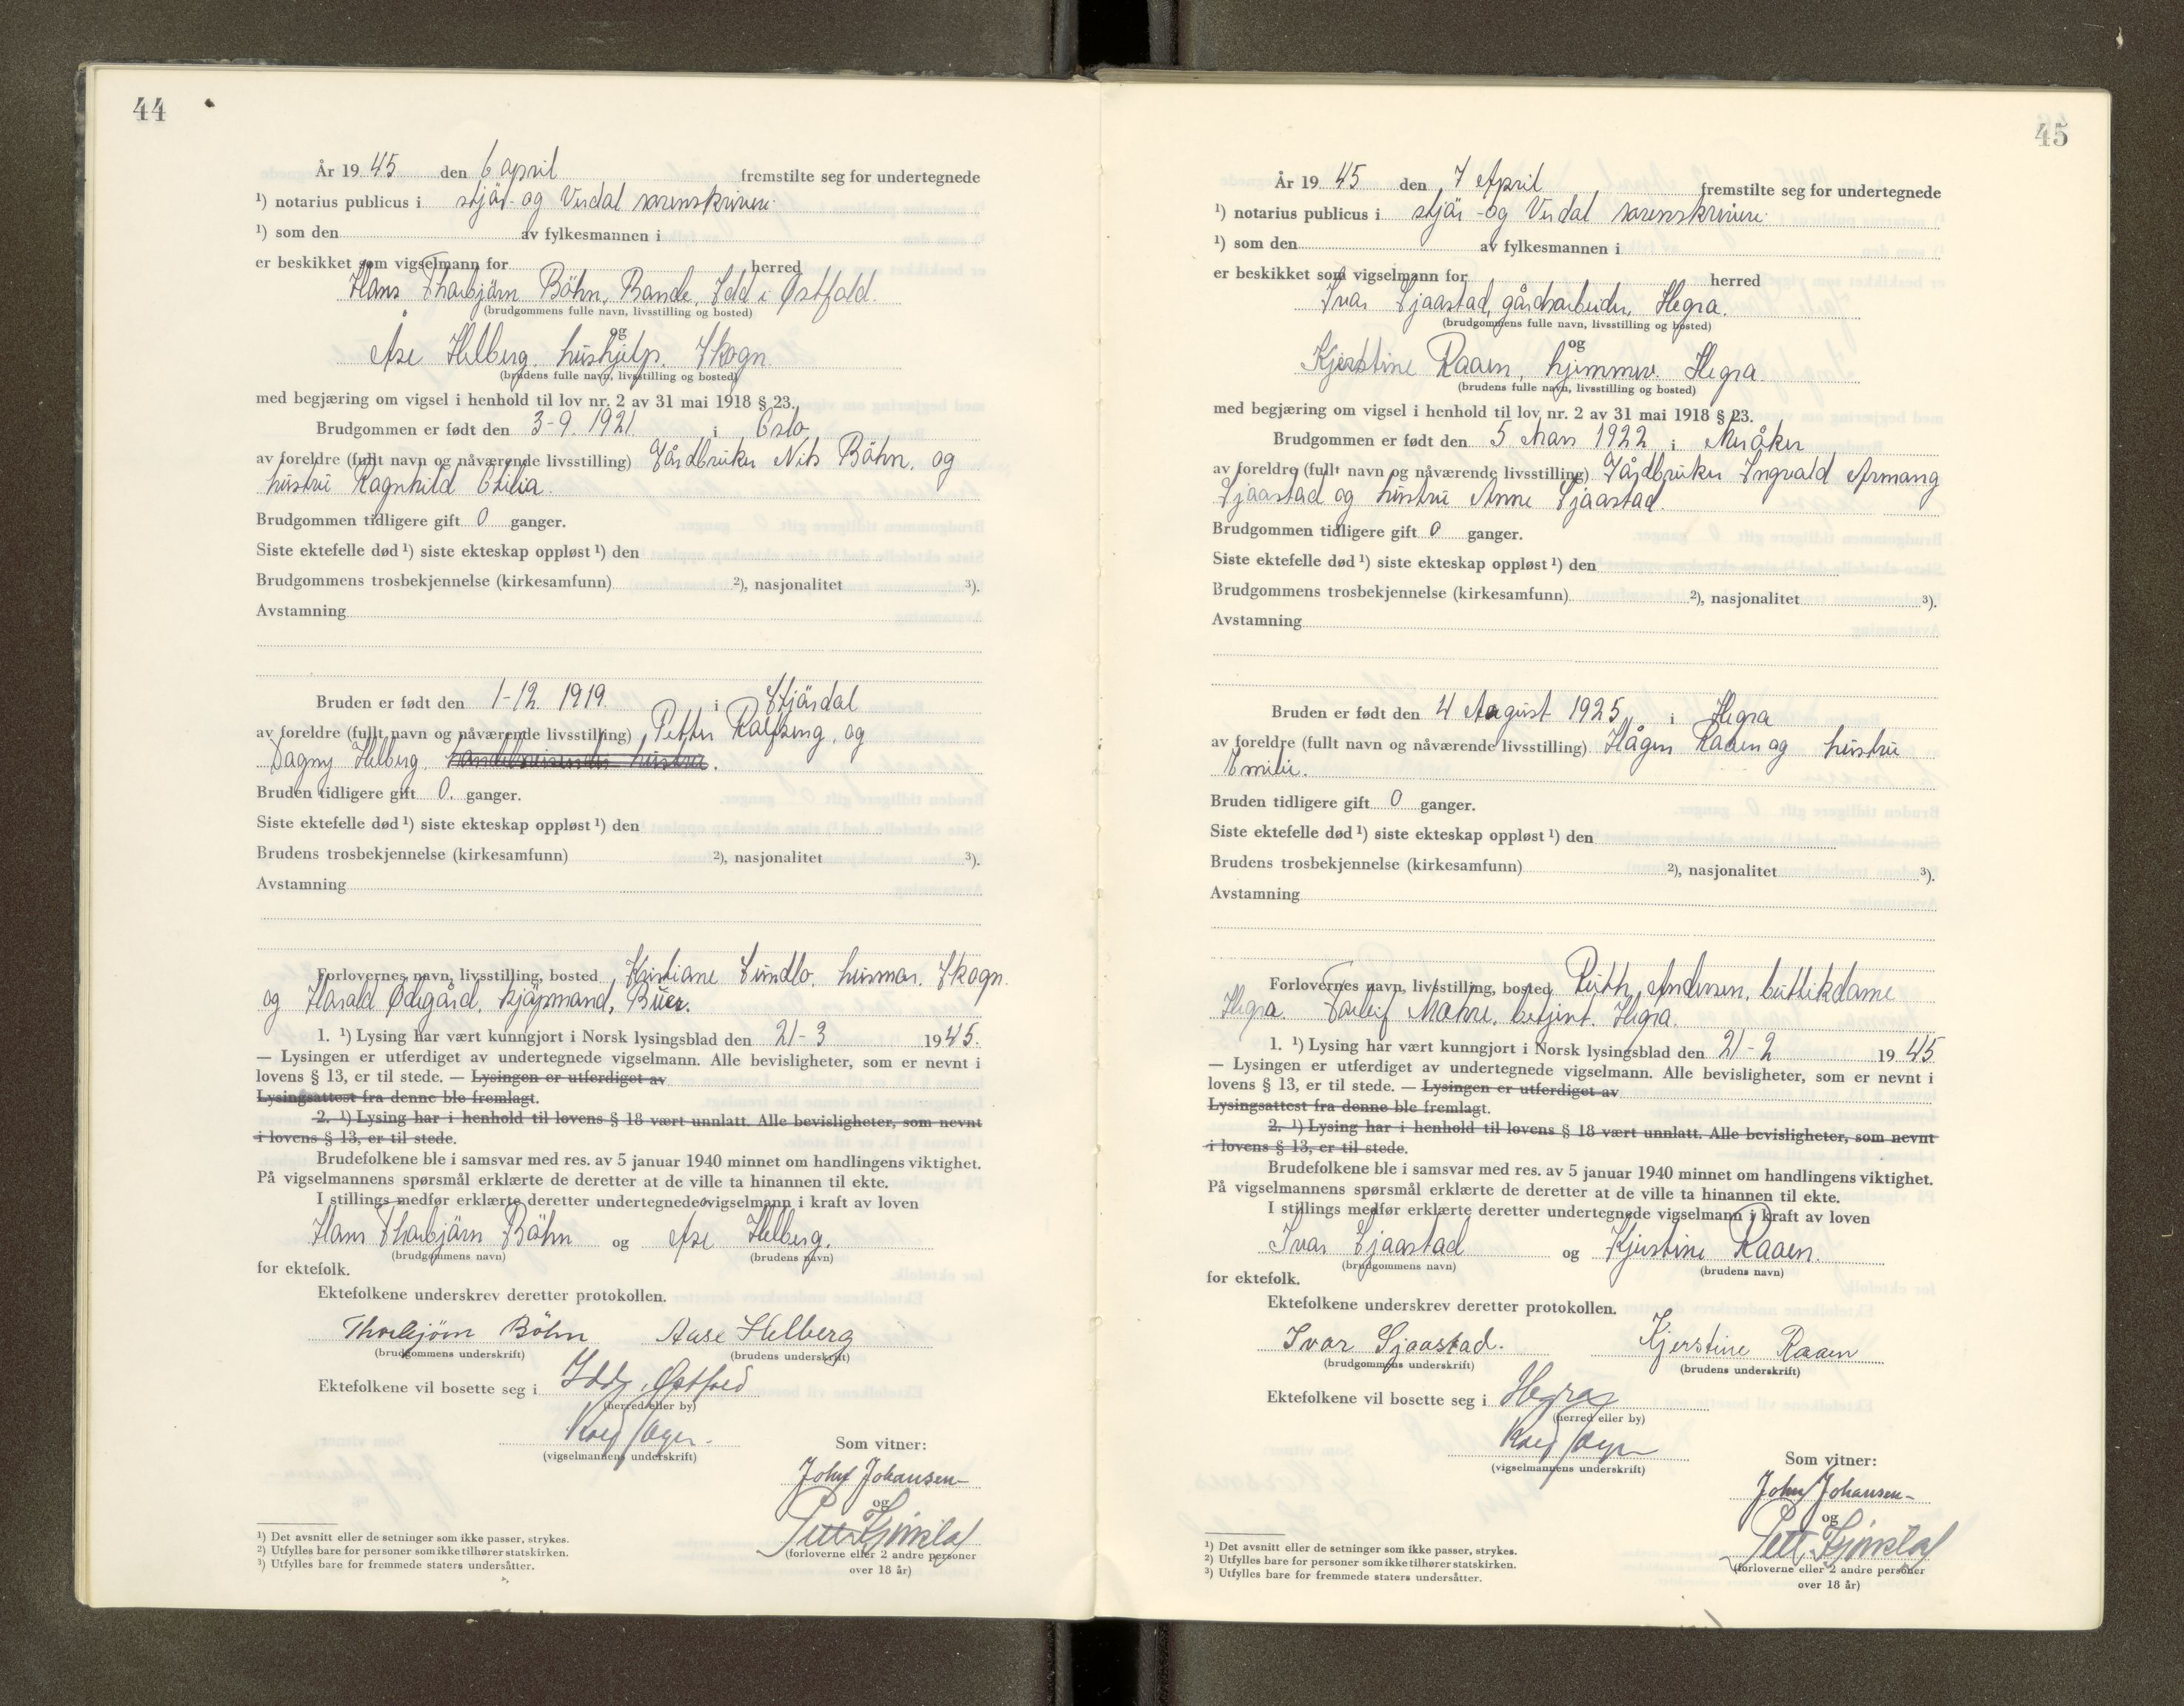 44
År 1945 den 6 april fremstilte seg for undertegnede
¹) notarius publicus i stjør- og Verdal sorenskriveri
¹) som den av fylkesmannen i
er beskikket som vigselmann for herred
Hans Thorbjørn Böhn, Idd i Østfold.
(brudgommens fulle navn, livsstilling og bosted)
og
Åse Helberg, hushjelp, Skogn.
(brudens fulle navn, livsstilling og bosted)
med begjæring om vigsel i henhold til lov nr. 2 av 31 mai 1918 § 23.
Brudgommen er født den 3-9. 1921 i Oslo
av foreldre (fullt navn og nåværende livsstilling) Gårdbruker Nils Böhn, og
hustru Ragnhild Otilia.
Brudgommen tidligere gift 0 ganger.
Siste ektefelle død ¹) siste ekteskap oppløst ¹) den
Brudgommens trosbekjennelse (kirkesamfunn) ²), nasjonalitet ³).
Avstamning
Bruden er født den 1-12. 1919. i Stjørdal
av foreldre (fullt navn og nåværende livsstilling) Petter, og
Dagny Helberg. hustru.
Bruden tidligere gift 0. ganger.
Siste ektefelle død ¹) siste ekteskap oppløst ¹) den
Brudens trosbekjennelse (kirkesamfunn) ²), nasjonalitet ³).
Avstamning
Forlovernes navn, livsstilling, bosted Kristiane Sundlo, husmor, Skogn
og Harald Ødegård, kjøpmand, Buer.
1. ¹) Lysing har vært kunngjort i Norsk lysingsblad den 21-3 1945.
— Lysingen er utferdiget av undertegnede vigselmann. Alle bevisligheter, som er nevnt i
lovens § 13, er til stede. — Lysingen er utferdiget av
Lysingsattest fra denne ble fremlagt.
2. ¹) Lysing har i henhold til lovens § 18 vært unnlatt. Alle bevisligheter, som nevnt
i lovens § 13, er til stede.
Brudefolkene ble i samsvar med res. av 5 januar 1940 minnet om handlingens viktighet.
På vigselmannens spørsmål erklærte de deretter at de ville ta hinannen til ekte.
I stillings medfør erklærte deretter undertegnede vigselmann i kraft av loven
Hans Thorbjørn Böhn og Åse Helberg.
(brudgommens navn) (brudens navn)
for ektefolk.
Ektefolkene underskrev deretter protokollen.
Thorbjørn Böhn Aase Helberg
(brudgommens underskrift) (brudens underskrift)
Ektefolkene vil bosette seg i Idd, Østfold
(herred eller by)
(vigselmannens underskrift)
Som vitner:
John Johansen
og
(forloverne eller 2 andre personer
over 18 år)
¹) Det avsnitt eller de setninger som ikke passer, strykes.
²) Utfylles bare for personer som ikke tilhører statskirken.
³) Utfylles bare for fremmede staters undersåtter.
45
År 1945 den 7 April fremstilte seg for undertegnede
¹) notarius publicus i stjør- og Verdal sorenskriveri
¹) som den av fylkesmannen i
er beskikket som vigselmann for herred
Ivar Sjaastad, gårdsarbeider, Hegra.
(brudgommens fulle navn, livsstilling og bosted)
og
Kjerstine Raaen, hjemmev. Hegra
(brudens fulle navn, livsstilling og bosted)
med begjæring om vigsel i henhold til lov nr. 2 av 31 mai 1918 § 23.
Brudgommen er født den 5 Mars 1922 i Meråker
av foreldre (fullt navn og nåværende livsstilling) Gårdbruker Ingvald Armang
Sjaastad og hustru Anne Sjaastad.
Brudgommen tidligere gift 0 ganger.
Siste ektefelle død ¹) siste ekteskap oppløst ¹) den
Brudgommens trosbekjennelse (kirkesamfunn) ²), nasjonalitet ³).
Avstamning
Bruden er født den 4 August 1925 i Hegra
av foreldre (fullt navn og nåværende livsstilling) Hågen Raaen og hustru
Emilie.
Bruden tidligere gift 0 ganger.
Siste ektefelle død ¹) siste ekteskap oppløst ¹) den
Brudens trosbekjennelse (kirkesamfunn) ²), nasjonalitet ³).
Avstamning
Forlovernes navn, livsstilling, bosted Ruth Andersen, butikdame
Hegra. Torleif Mæhre, betjent. Hegra.
1. ¹) Lysing har vært kunngjort i Norsk lysingsblad den 21-2 1945
— Lysingen er utferdiget av undertegnede vigselmann. Alle bevisligheter, som er nevnt i
lovens § 13, er til stede. — Lysingen er utferdiget av
Lysingsattest fra denne ble fremlagt.
2. ¹) Lysing har i henhold til lovens § 18 vært unnlatt. Alle bevisligheter, som nevnt
i lovens § 13, er til stede.
Brudefolkene ble i samsvar med res. av 5 januar 1940 minnet om handlingens viktighet.
På vigselmannens spørsmål erklærte de deretter at de ville ta hinannen til ekte.
I stillings medfør erklærte deretter undertegnede vigselmann i kraft av loven
Ivar Sjaastad og Kjerstine Raaen.
(brudgommens navn) (brudens navn)
for ektefolk.
Ektefolkene underskrev deretter protokollen.
Ivar Sjaastad. Kjerstine Raaen
(brudgommens underskrift) (brudens underskrift)
Ektefolkene vil bosette seg i Hegra
(herred eller by)
(vigselmannens underskrift)
Som vitner:
John Johansen
og
(forloverne eller 2 andre personer
over 18 år)
¹) Det avsnitt eller de setninger som ikke passer, strykes.
²) Utfylles bare for personer som ikke tilhører statskirken.
³) Utfylles bare for fremmede staters undersåtter.